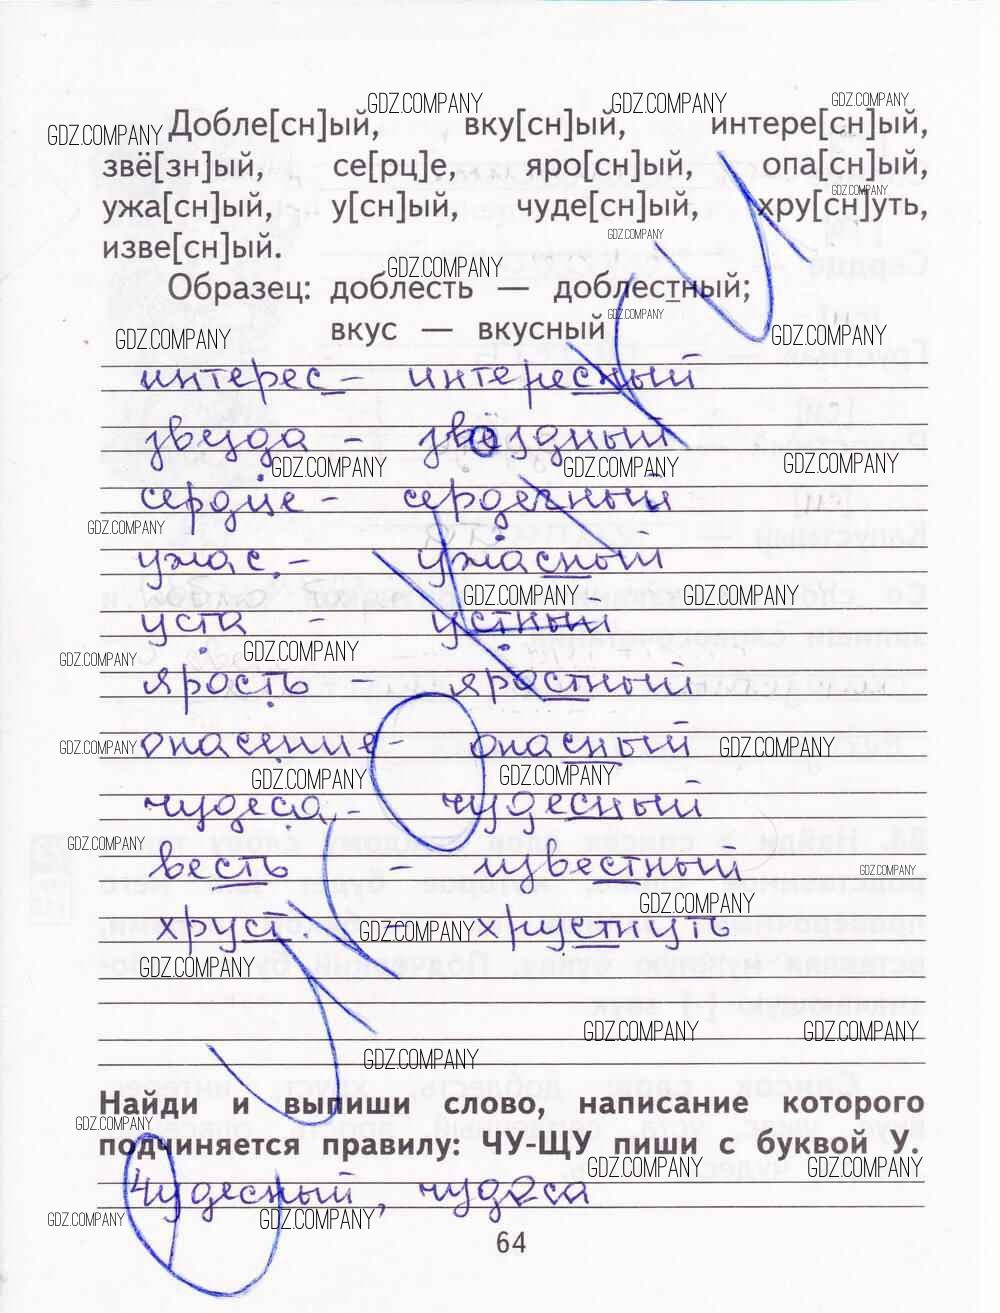 Добле[сн]ый, вку[сн]ый, интере[сн]ый,
звё[зн]ый, се[рц]е, яро[сн]ый, опа[сн]ый,
ужа[сн]ый, у[сн]ый, чуде[сн]ый, хру[сн]уть,
изве[сн]ый.
Образец: доблесть — доблестный;
вкус — вкусный
интерес – интересный
звезда – звёздный
сердце – сердечный
ужас – ужасный
уста – устный
ярость – яростный
опасение – опасный
чудеса – чудесный
весть – известный
хруст – хрустнуть
Найди и выпиши слово, написание которого
подчиняется правилу: ЧУ-ЩУ пиши с буквой У.
Чудесный, чудеса
64
GDZ.COMPANY